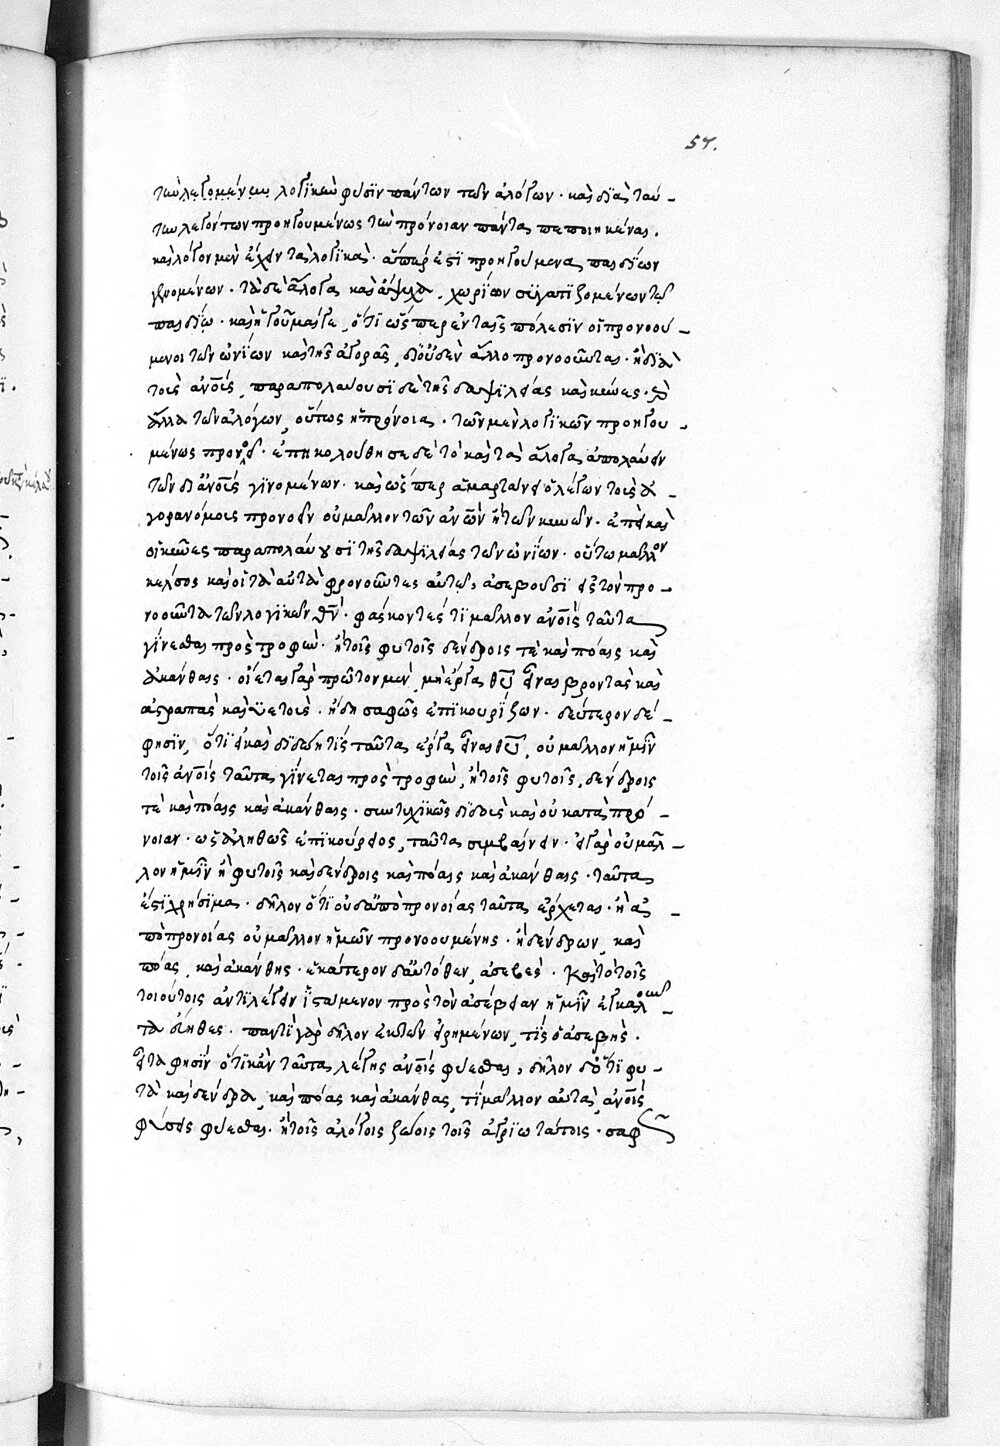 57.
τὴν λεγομένην λογικὴν φύσιν πάντων τῶν ἀλόγων. καὶ διὰ ταύ-
την λεγόντων προηγουμένως τὴν πρόνοιαν πάντα πεποιηκέναι.
καὶ λόγον μὲν ἔχειν τὰ λογικὰ. ἅπερ ἐστὶ προηγούμενα παιδίων
γεννωμένων. τὰ δὲ ἄλογα καὶ ἄψυχα, χωρίων συγκτιζομένων τῷ
παιδίῳ. καὶ ἡγοῦμαί γε, ὅτι ὥσπερ ἐν ταῖς πόλεσιν οἱ προνοού-
μενοι τῶν ὠνίων καὶ τῆς ἀγορᾶς, δι' οὐδὲν ἄλλο προνοοῦνται. ἢ διὰ
τοὺς ἀνο̅υς, παραπολαύουσι δὲ τῆς δαψιλείας καὶ κύνες. καὶ
ἄλλα τῶν ἀλόγων, οὕτως ἡ πρόνοια. τῶν μὲν λογικῶν προηγου-
μένως προνοεῖ. ἐπηκολούθησε δὲ τὸ καὶ τὰ ἄλογα ἀπολαύειν
τῶν δι' ἀνο̅υς γινομένων. καὶ ὥσπερ ἁμαρτάνει ὁ λέγων τοὺς ἀ-
γορανόμους προνοεῖν οὐ μᾶλλον τῶν ἀνω̅ν ἢ τῶν κυνῶν. ἐπεὶ καὶ
οἱ κύνες παραπολαύουσι τῆς δαψιλείας τῶν ὠνίων. οὕτω μᾶλλον
κέλσος καὶ οἱ τὰ αὐτὰ φρονοῦντες αὐτῷ, ἀσεβοῦσι εἰς τὸν προ-
νοοῦντα τῶν λογικῶν θν̅. φάσκοντες τί μᾶλλον ἀνοι̅ς ταῦτα
γίνεσθαι πρὸς τροφὴν. ἢ τοῖς φυτοῖς δένδροις τὲ καὶ πόαις καὶ
ἀκάνθαις. οἴεται γὰρ πρῶτον μὲν, μὴ ἔργα θυ̅ εἶναι βροντὰς καὶ
ἀστραπὰς καὶ ὑετοὺς. ἤδη σαφῶς ἐπικουρίζων. δεύτερον δέ
φησιν, ὅτι εἰ καὶ διδῴη τίς ταῦτα ἔργα εἶναι θυ̅, οὐ μᾶλλον ἡμῖν
τοῖς ἀνοι̅ς ταῦτα γίνεται πρὸς τροφὴν, ἢ τοῖς φυτοῖς, δένδροις
τὲ καὶ πόαις καὶ ἀκάνθαις. συντυχικῶς διδοὺς καὶ οὐ κατὰ πρό-
νοιαν. ὡς ἀληθῶς ἐπικούρειος, ταῦτα συμβαίνειν. εἰ γὰρ οὐ μᾶλ-
λον ἡμῖν ἢ φυτοῖς καὶ δένδροις καὶ πόαις καὶ ἀκάνθαις. ταῦτα
ἐστὶ χρήσιμα. δῆλον ὅτι οὐδ' ἀπὸ προνοίας ταῦτα ἔρχεται. ἢ ἀ-
πὸ προνοίας οὐ μᾶλλον ἡμῶν προνοουμένης. ἢ δένδρων, καὶ
πόας, καὶ ἀκάνθης. ἑκάτερον δ' αὐτόθεν, ἀσεβὲς. καὶ τὸ τοῖς
τοιούτοις ἀντιλέγειν ἱστάμενον πρὸς τὸν ἀσέβειαν ἡμῖν ἐγκαλοῦν
τα εὔηθες. παντὶ γὰρ δῆλον ἐκ τῶν εἰρημένων, τίς ὁ ἀσεβὴς.
εἶτα φησὶν ὅτι κἂν ταῦτα λέγῃς ἀνοι̅ς φύεσθαι, δῆλον δ' ὅτι φυ-
τὰ καὶ δένδρα, καὶ πόας καὶ ἀκάνθας, τί μᾶλλον αὐτὰ, ἀνοι̅ς
φήσεις φύεσθαι. ἢ τοῖς ἀλόγοις ζῴοις τοῖς ἀγριωτάτοις. σαφῶς